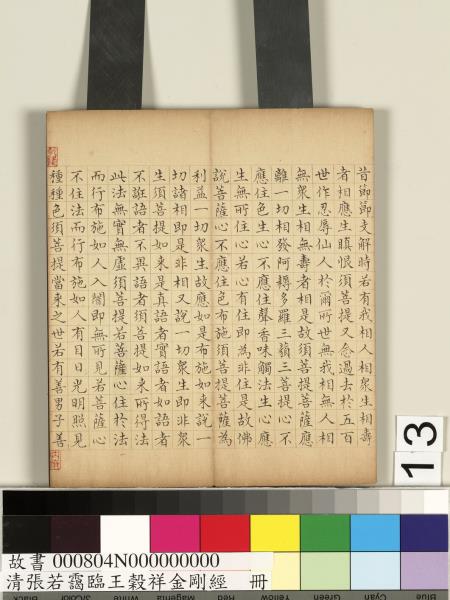 昔節節支解時若有我相人相眾生相壽
者相應生瞋恨須菩提又念過去於五百
世作忍辱仙人於爾所世無我相無人相
無眾生相無壽者相是故須菩提菩薩應
離一切相發阿耨多羅三藐三菩提心不
應住色生心不應住聲香味觸法生心應
生無所住心若心有住即為非住是故佛
說菩薩心不應住色布施須菩提菩薩為
利益一切眾生故應如是布施如來說一
切諸相即是非相又說一切眾生即非眾
生須菩提如來是真語者實語者如語者
不誑語者不異語者須菩提如來所得法
此法無實無虛須菩提若菩薩心住於法
而行布施如人入闇即無所見若菩薩心
不住法而行布施如人有目日光明照見
種種色須菩提當來之世若有善男子善
13
故書 000804N000000000
清張若靄臨王穀祥金剛經 冊
Black 3/Color White Magenta Red Yellow Green Cyan Blue